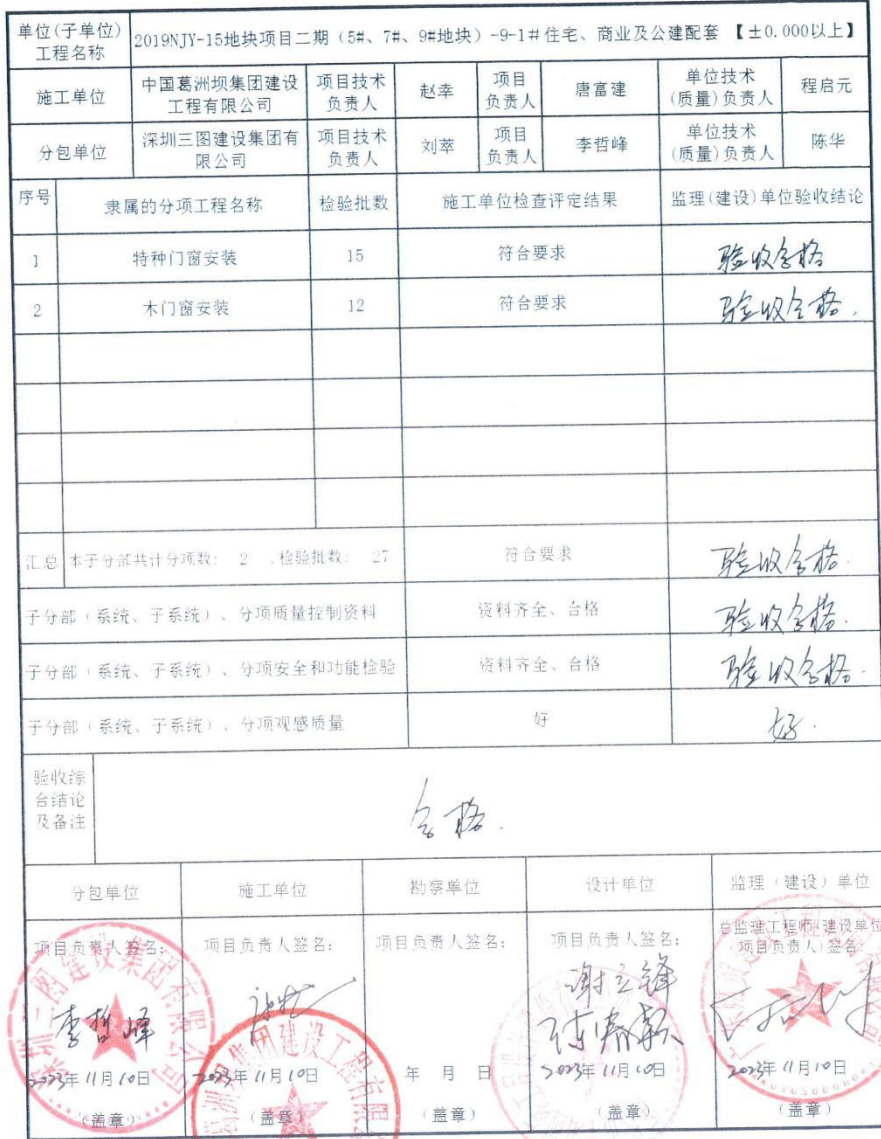 单位(子单位)
工程名称
2019NJY-15地块项目二期（5#、7#、9#地块）-9-1#住宅、商业及公建配套 【±0.000以上】
施工单位
中国葛洲坝集团建设
工程有限公司
项目技术
负责人
赵幸
项目
负责人
唐富建
单位技术
(质量)负责人
程启元
分包单位
深圳三图建设集团有
限公司
项目技术
负责人
刘萃
项目
负责人
李哲峰
单位技术
(质量)负责人
陈华
序号
隶属的分项工程名称
检验批数
施工单位检查评定结果
监理(建设)单位验收结论
1
特种门窗安装
15
符合要求
验收合格
2
木门窗安装
12
符合要求
验收合格.
汇总
本子分部共计分项数: 2 ,检验批数: 27
符合要求
验收合格.
子分部（系统、子系统）、分项质量控制资料
资料齐全、合格
验收合格.
子分部（系统、子系统）、分项安全和功能检验
资料齐全、合格
验收合格.
子分部（系统、子系统）、分项观感质量
好
好.
验收综
合结论
及备注
合格.
分包单位
施工单位
勘察单位
设计单位
监理（建设）单位
项目负责人签名:
项目负责人签名:
项目负责人签名:
项目负责人签名:
总监理工程师(建设单位
项目负责人)签名:
李哲峰
谢立锋
2023年11月10日
2023年11月10日
年 月 日
2023年11月10日
2023年11月10日
（盖章）
（盖章）
（盖章）
（盖章）
（盖章）
深圳三图建设集团有限公司
集团建设工程有限